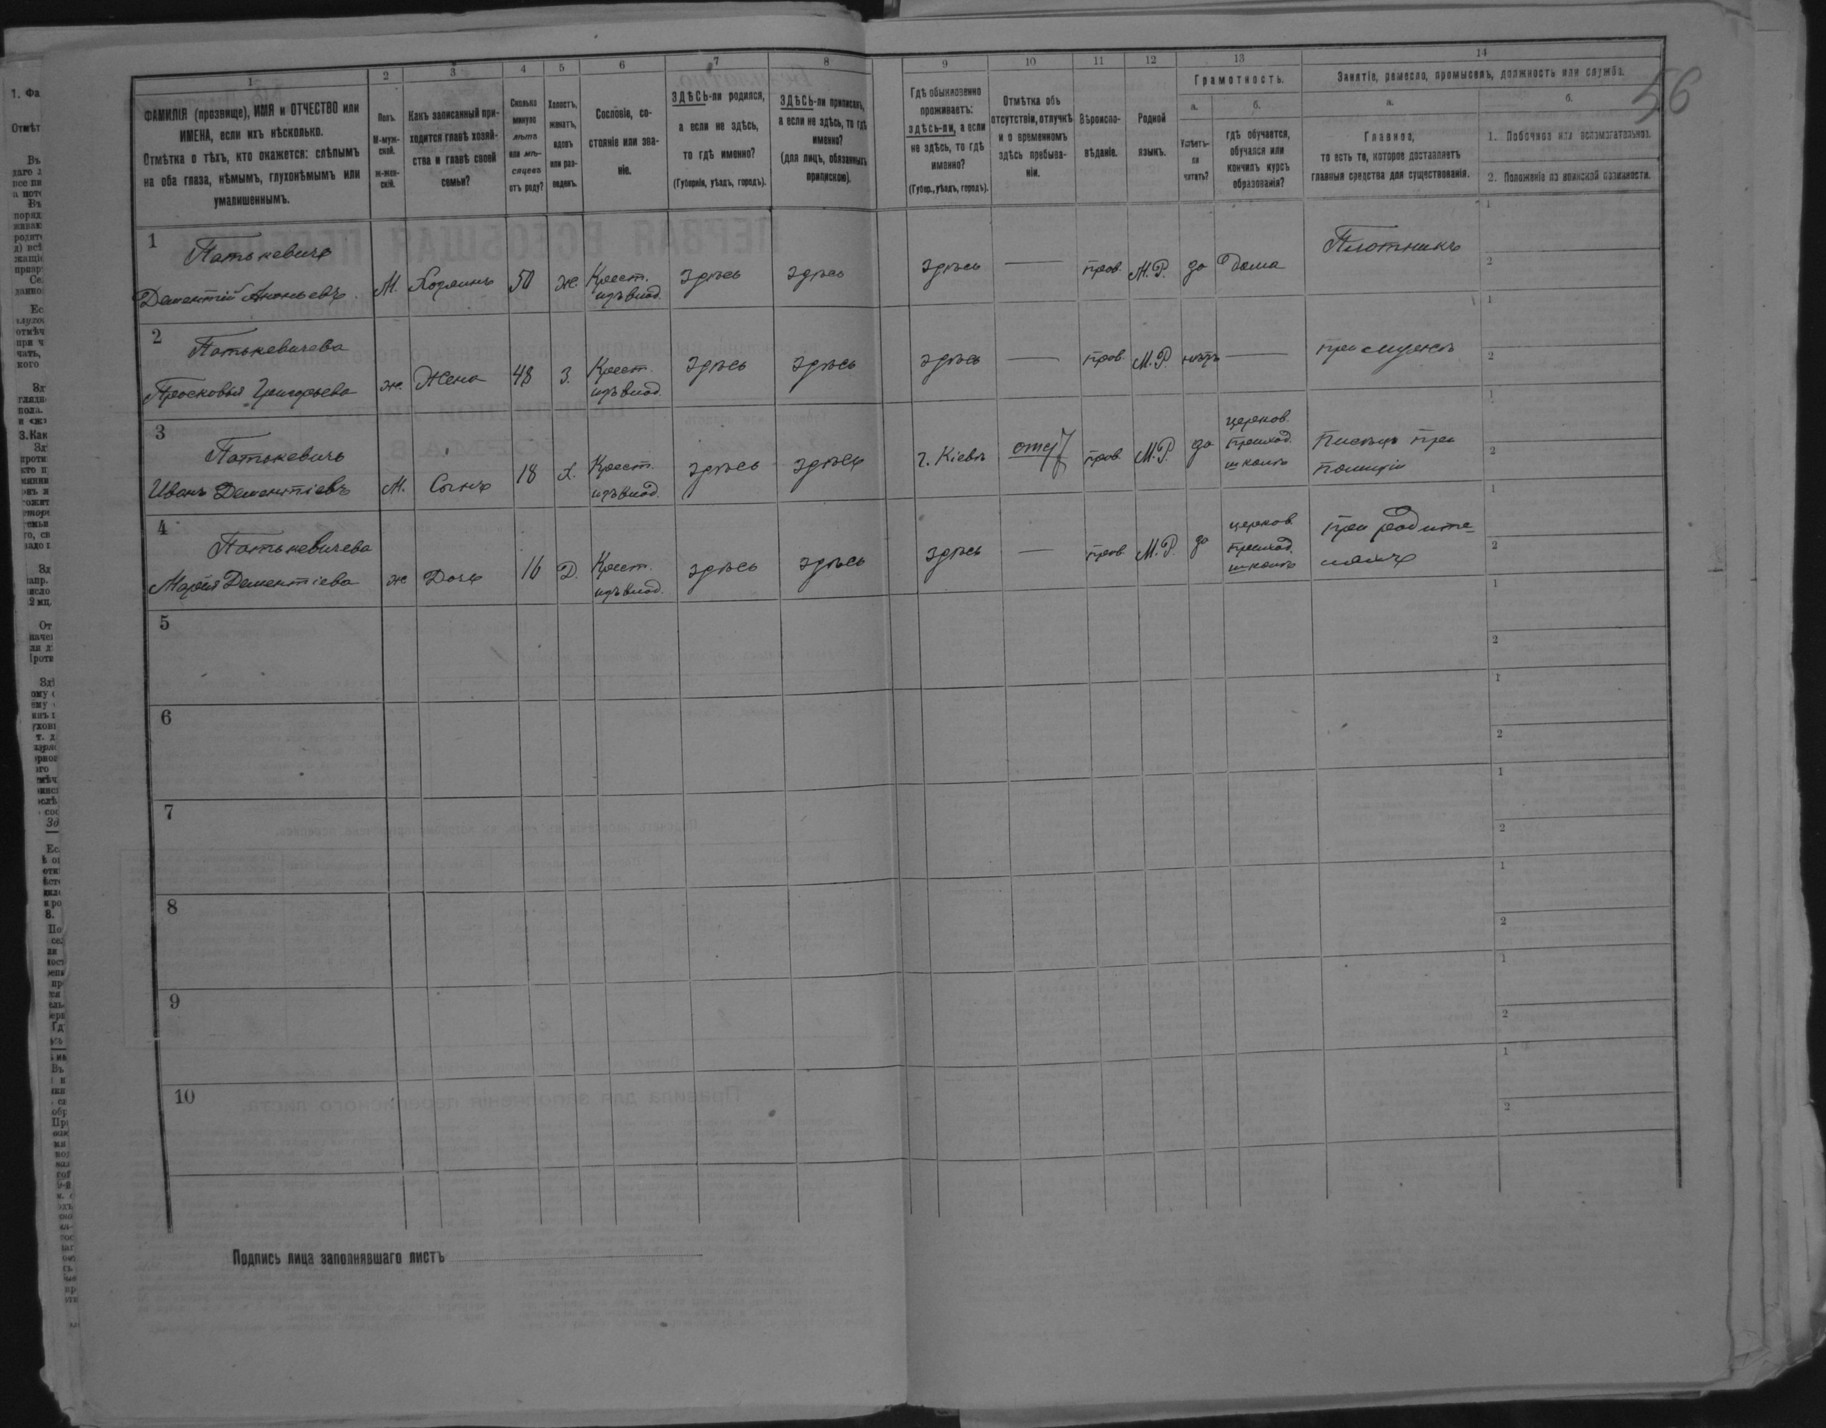 56
1 2 3 4 5 6 7 8 9 10 11 12 13 14
ФАМИЛІЯ (прозвище), ИМЯ и ОТЧЕСТВО или ИМЕНА, если ихъ нѣсколько.
Отмѣтка о тѣхъ, кто окажется: слѣпымъ на оба глаза, нѣмымъ, глухонѣмымъ или умалишеннымъ.
Полъ. М-мужской. Ж-женскій.
Какъ записанный приходится главѣ хозяйства и главѣ своей семьи?
Сколько минуло лѣтъ или мѣсяцевъ отъ роду?
Холостъ, женатъ, вдовъ или разведенъ.
Сословіе, состояніе или званіе.
ЗДѢСЬ-ли родился, а если не здѣсь, то гдѣ именно?
(Губернія, уѣздъ, городъ).
ЗДѢСЬ-ли приписанъ, а если не здѣсь, то гдѣ именно?
(для лицъ, обязанныхъ припискою).
Гдѣ обыкновенно проживаетъ: здѣсь-ли, а если не здѣсь, то гдѣ именно?
(Губер., уѣздъ, городъ).
Отмѣтка объ отсутствіи, отлучкѣ и о временномъ здѣсь пребываніи.
Вѣроисповѣданіе.
Родной языкъ.
Грамотность.
а. Умѣетъ-ли читать?
б. гдѣ обучается, обучался или кончилъ курсъ образованія?
Занятіе, ремесло, промыселъ, должность или служба.
а. Главное, то есть то, которое доставляетъ главныя средства для существованія.
б.
1. Побочное или вспомогательное.
2. Положеніе по воинской повинности.
1 Патькевичъ
Дементій Ананьевъ. М. Хозяинъ 50 ж. Крест. изъ влад. здѣсь здѣсь здѣсь — прав. М.Р. да Дома Плотникъ
2 Патькевичева
Просковья Григорьева ж. Жена 48 З. Крест. изъ влад. здѣсь здѣсь здѣсь — прав. М.Р. нѣтъ — при мужѣ
3 Патькевичъ
Иванъ Дементіевъ М. Сынъ 18 Х. Крест. изъ влад. здѣсь здѣсь г. Кіевъ прав. М.Р. да церков. приход. школѣ Писецъ при полиціи
4 Патькевичева
Марія Дементіева ж Дочь 16 Д. Крест. изъ влад. здѣсь здѣсь здѣсь — прав М.Р. да церков приход. школѣ при родителяхъ
5
6
7
8
9
10
Подпись лица заполнявшаго листъ